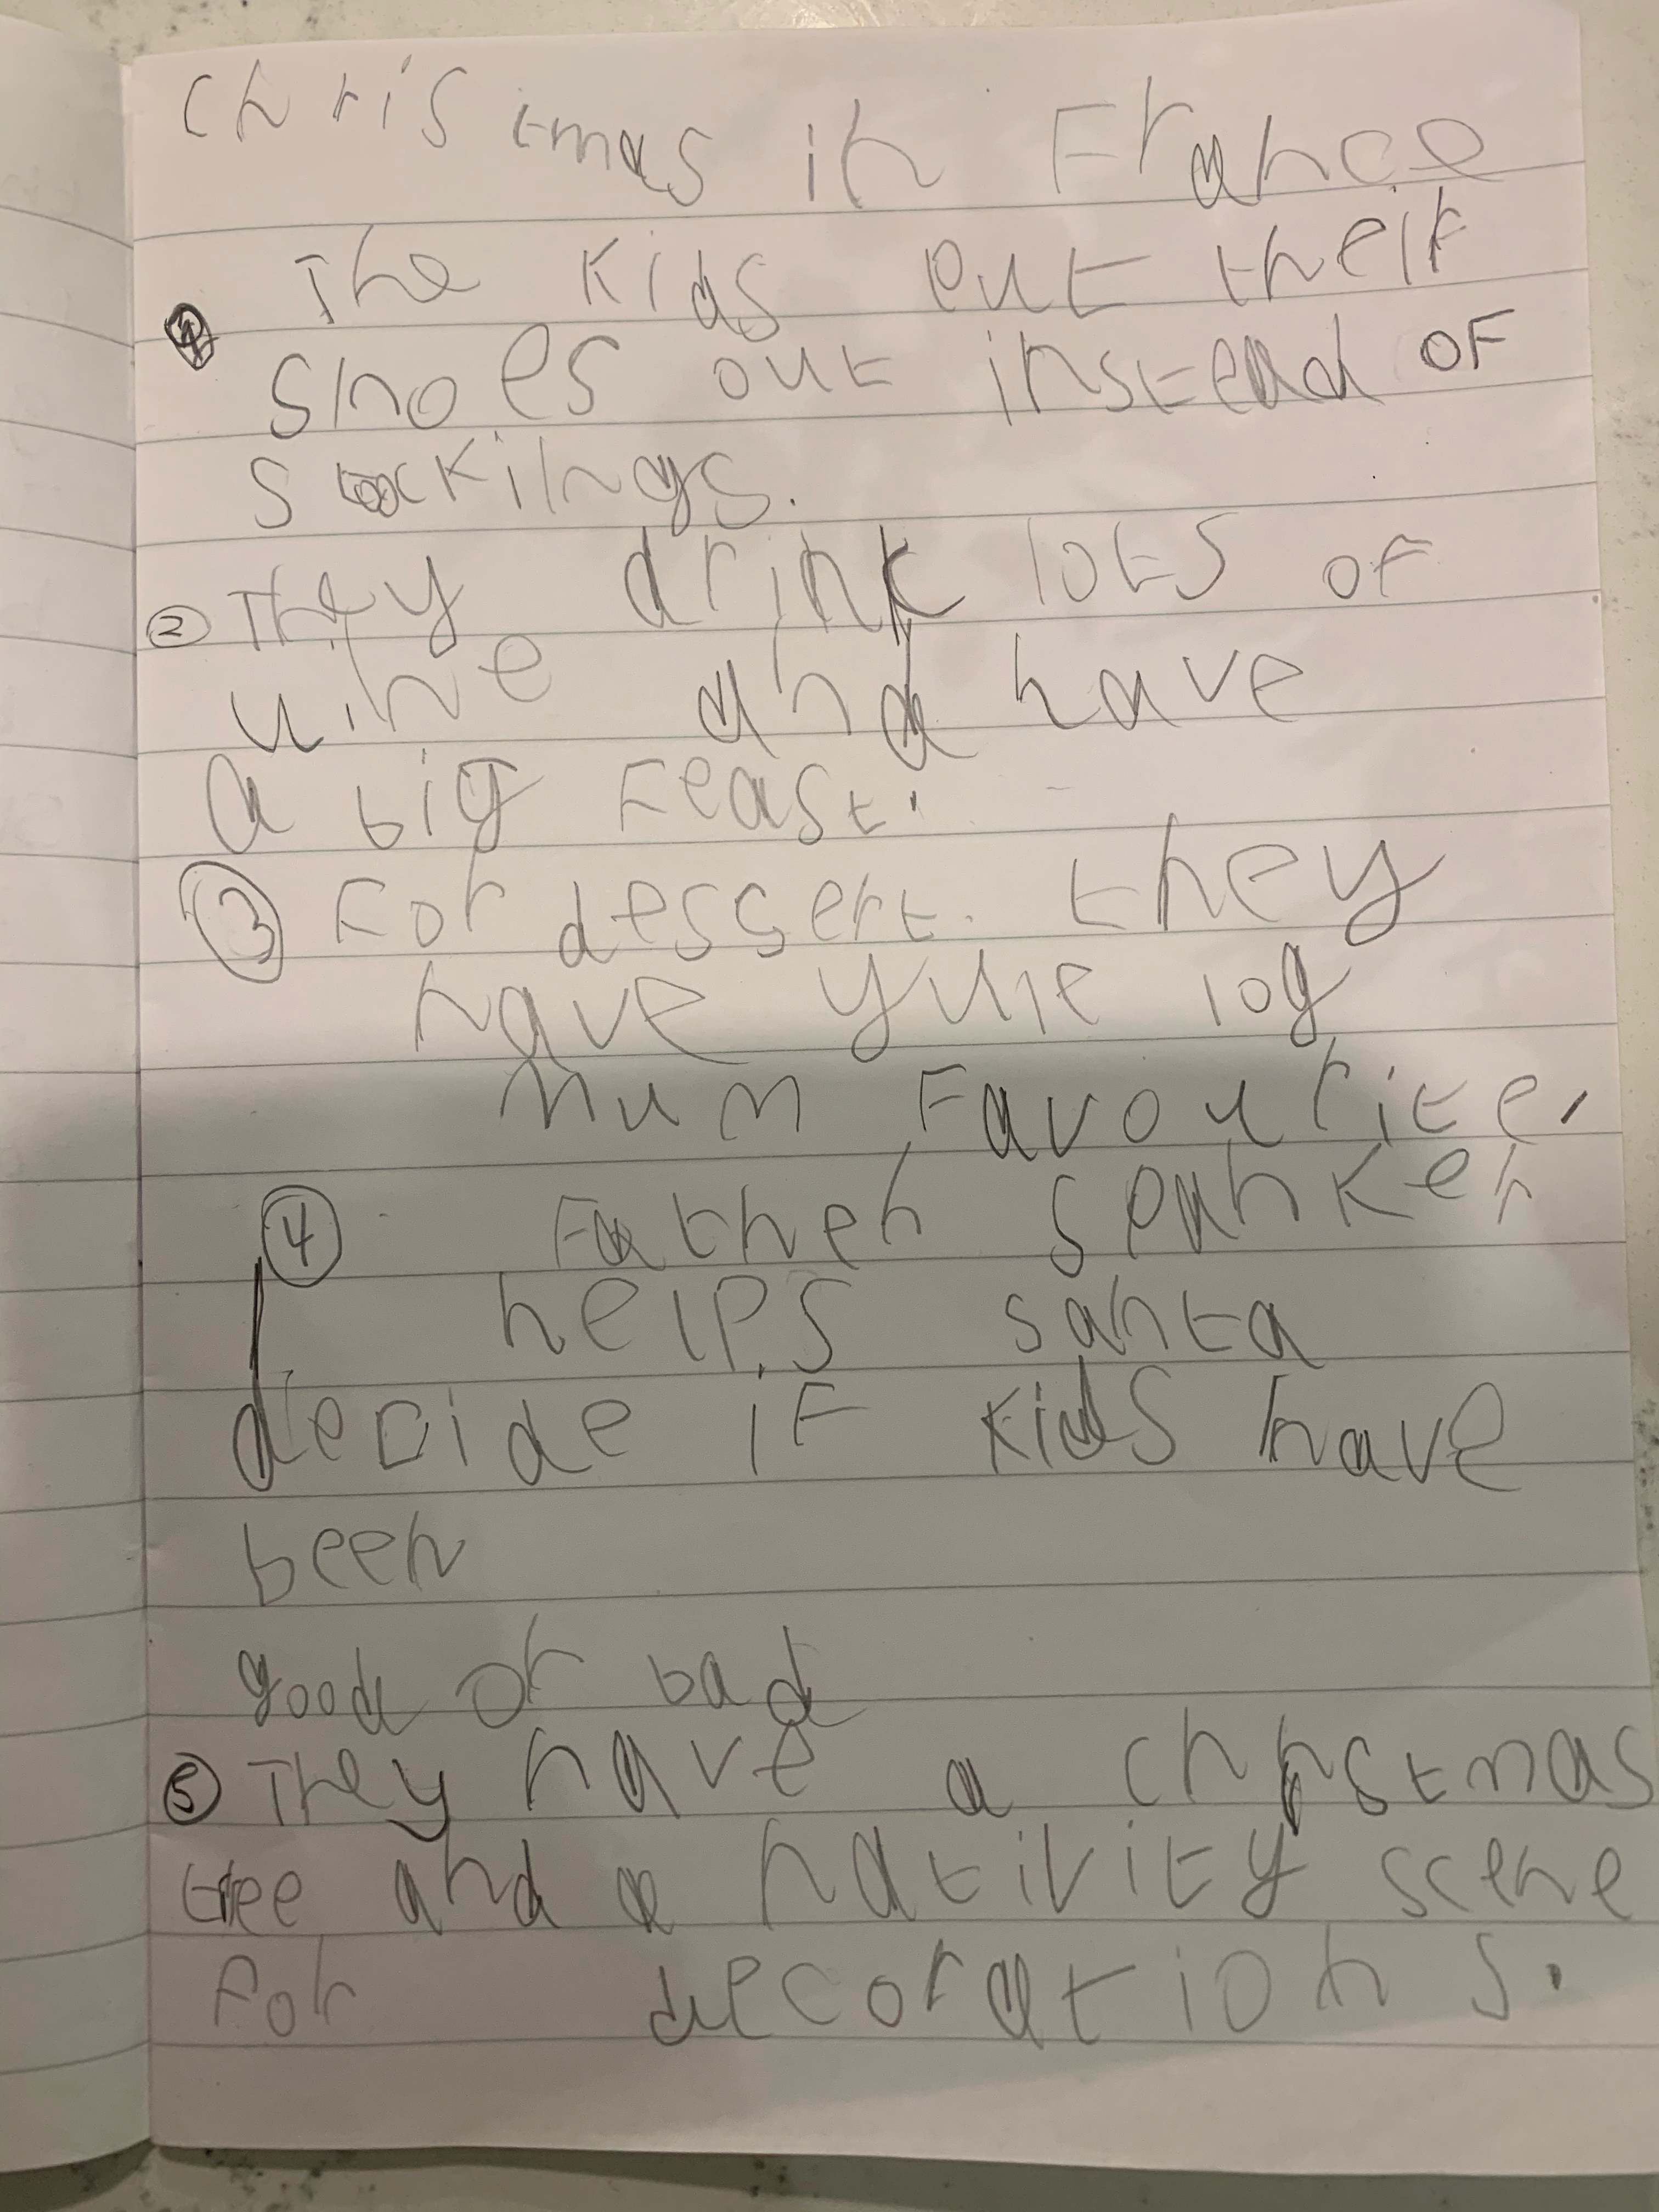 Christmas in France
① The kids put their
shoes out instead of
stockings.
② They drink lots of
wine and have
a big feast.
③ For dessert. they
have yule log
Mum favourite.
④ Father spanker
helps santa
decide if kids have
been
good or bad
⑤ They have a christmas
tree and a nativity scene
for decorations.